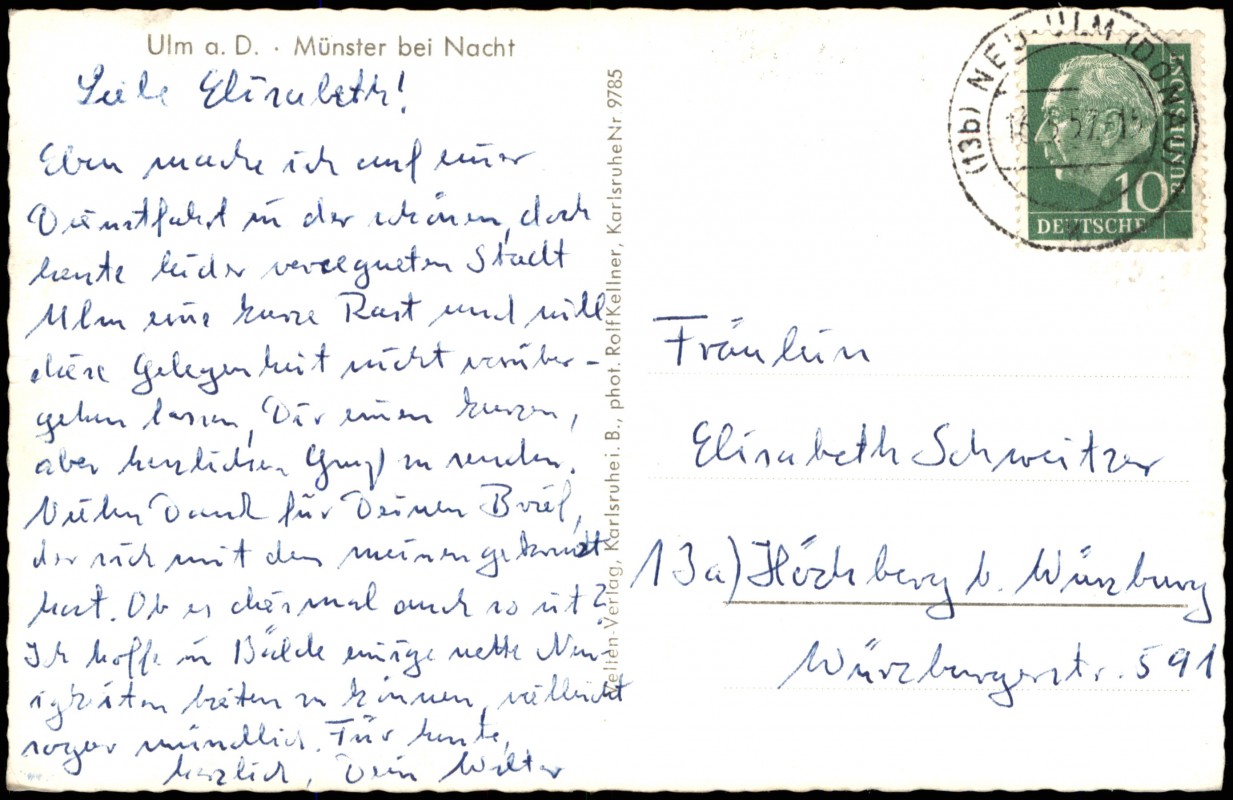 Ulm a. D. · Münster bei Nacht
Liebe Elisabeth!
Eben mache ich auf einer
Dienstfahrt in der schönen, doch
heute leider verregneten Stadt
Ulm eine kurze Rast und will
diese Gelegenheit nicht vorüber-
gehen lassen, Dir einen kurzen,
aber herzlichen Gruß zu senden.
Vielen Dank für Deinen Brief,
der sich mit dem meinen gekreuzt
hat. Ob es diesmal auch so ist?
Ich hoffe in Bälde einige nette Neu-
igkeiten bieten zu können, vielleicht
sogar mündlich. Für heute,
herzlich, Dein Walter
Velten-Verlag, Karlsruhe i. B., phot. Rolf Kellner, Karlsruhe Nr. 9785
(13b) NEU-ULM (DONAU)
57-15
DEUTSCHE BUNDESPOST
10
Fräulein
Elisabeth Schweitzer
13a) Höchberg b. Würzburg
Würzburgerstr. 591